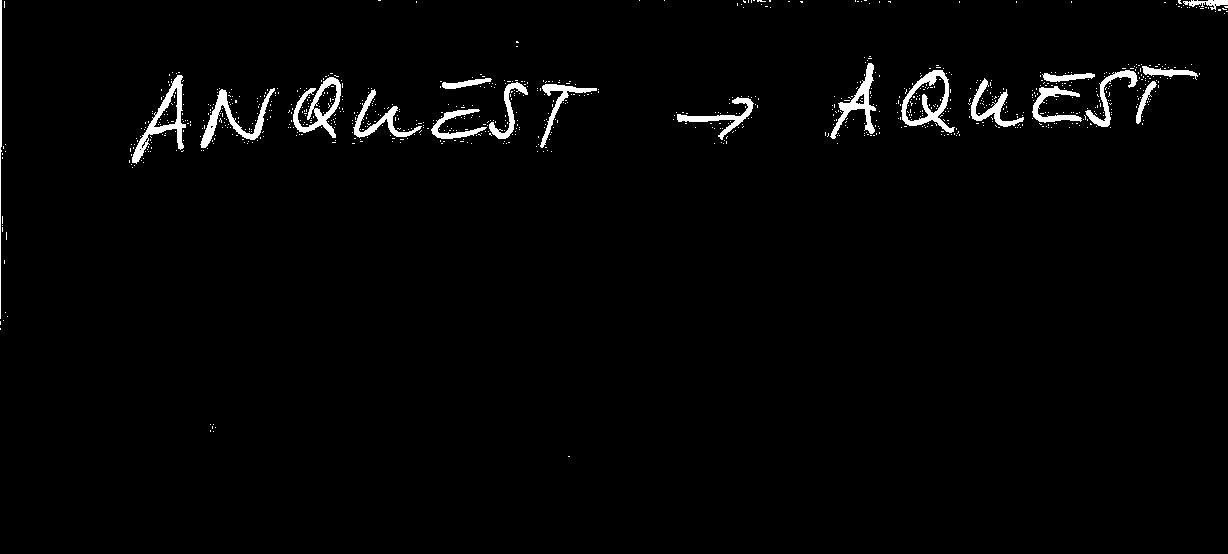 ANQUEST → AQUEST